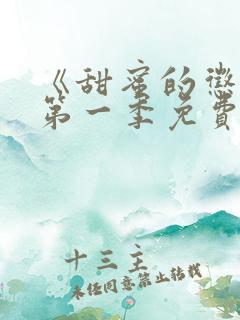 《甜蜜的惩
第一季免费
十三主
未经同意禁止转载